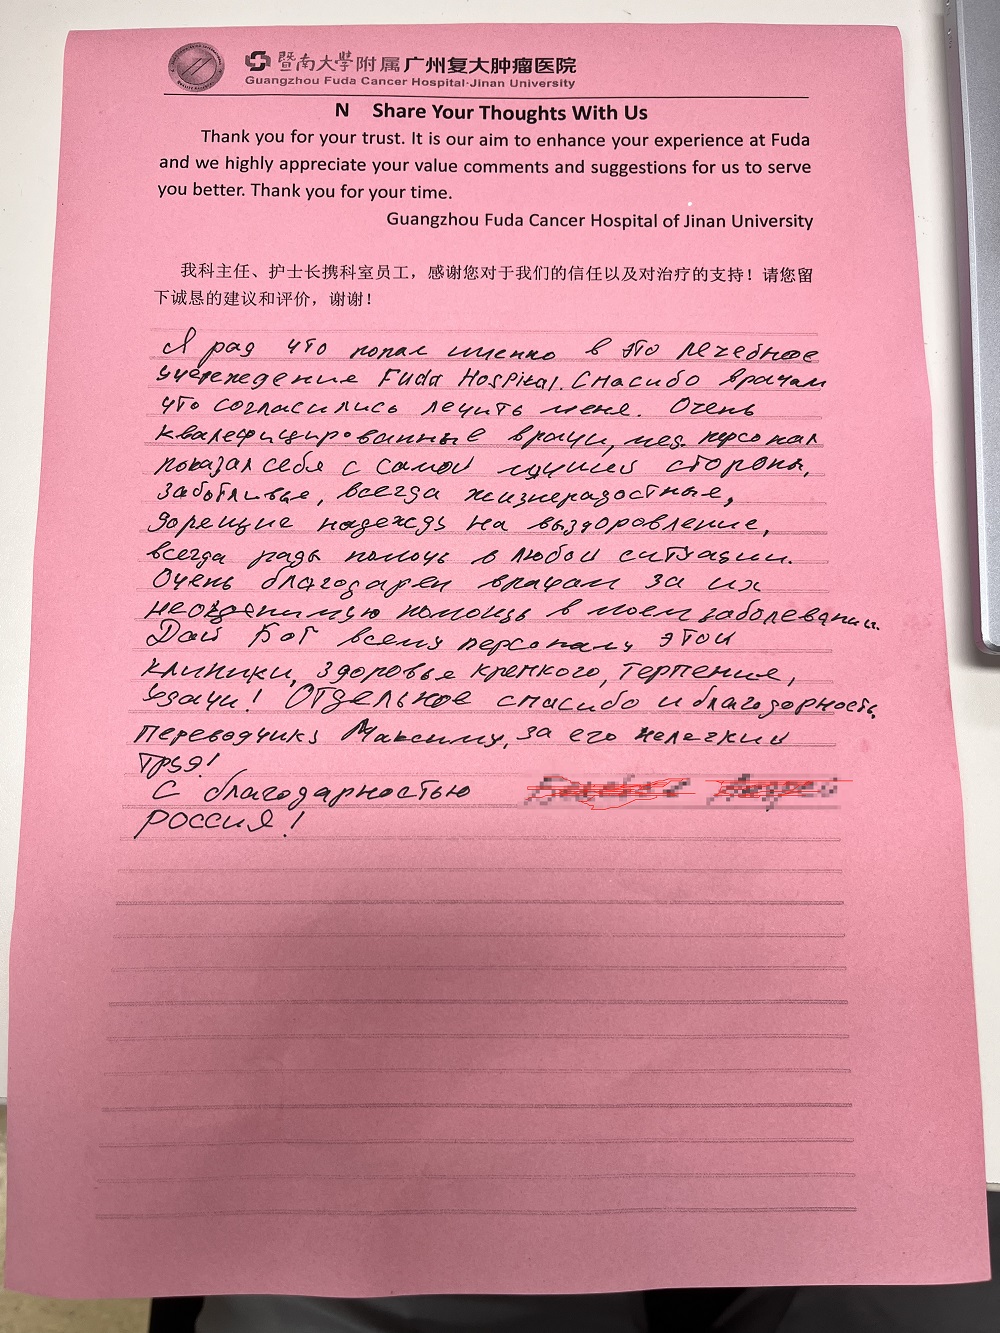 暨南大學附属广州复大肿瘤医院
Guangzhou Fuda Cancer Hospital·Jinan University
N Share Your Thoughts With Us
Thank you for your trust. It is our aim to enhance your experience at Fuda
and we highly appreciate your value comments and suggestions for us to serve
you better. Thank you for your time.
Guangzhou Fuda Cancer Hospital of Jinan University
我科主任、护士长携科室员工，感谢您对于我们的信任以及对治疗的支持！请您留
下诚恳的建议和评价，谢谢！
Я рад что попал именно в это лечебное
учереждение Fuda Hospital. Спасибо врачам
что согласились лечить меня. Очень
квалефицированные врачи, мед. персонал
показал себя с самой лучшей стороны,
заботливые, всегда жизнерадостные,
дорещие надежду на выздоровление,
всегда рады помочь в любой ситуации.
Очень благодарен врачам за их
неоценимую помощь в моем заболевании.
Дай Бог всему персоналу этой
клиники, здоровье крепкого, терпения,
удачи! Отдельное спасибо и благодарность
переводчику Максиму, за его нелегкий
труд!
С благодарностью
Россия!